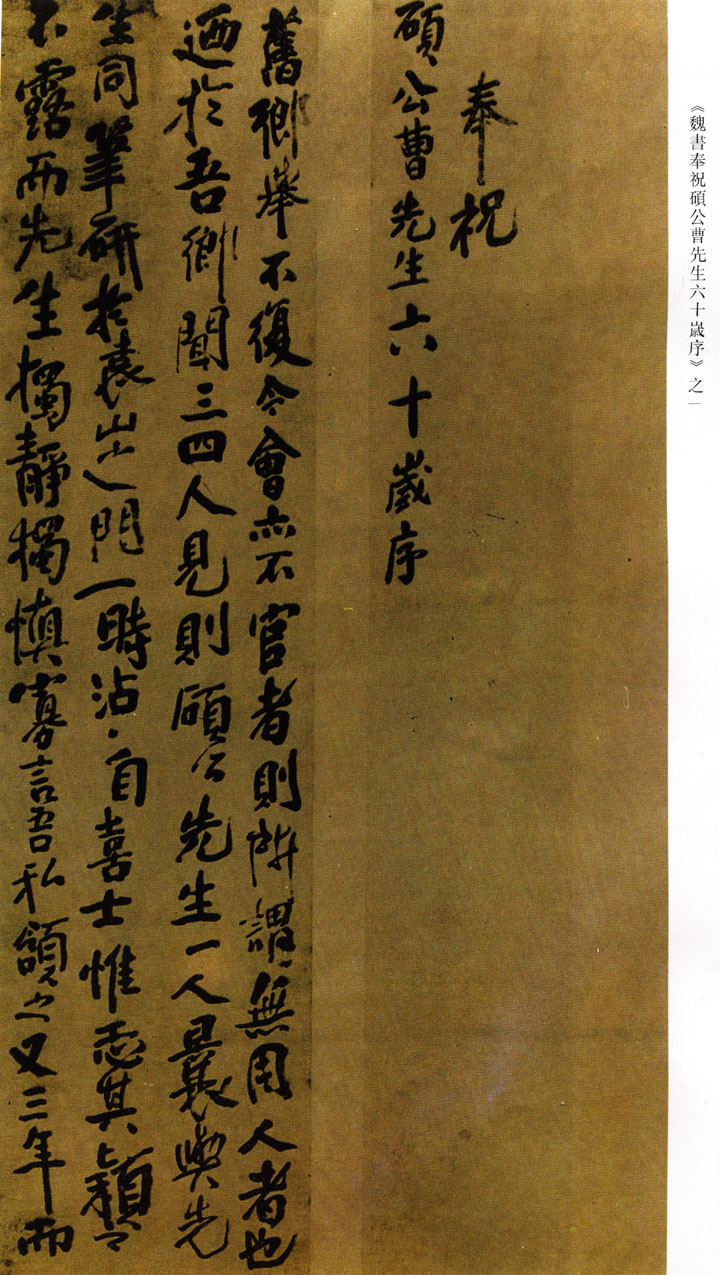 《魏書奉祝碩公曹先生六十歲序》之一
奉祝
碩公曹先生六十歲序
舊鄉舉不復今會亦不官者則所謂無用人者也
迺於吾鄉聞三四人見則碩公先生一人曩與先
生同筆研於袁山之門一時沾々自喜士惟恐其穎之
不露而先生獨靜獨慎寡言吾私頷之又三年而